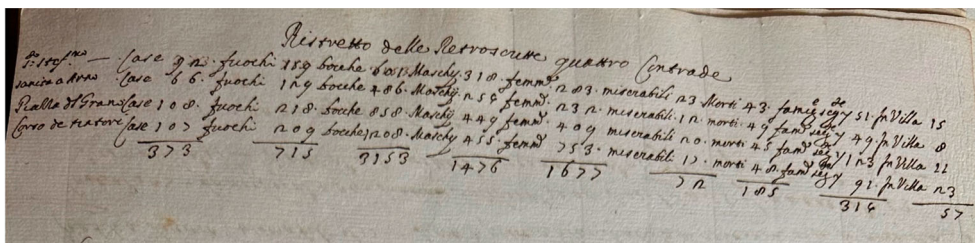 Ristretto delle Retroscritte quattro Contrade
S:to Stef:no — Case 92. fuochi 159 bocche 601 Maschy 318. femm: 283. miserabili 23 Morti 43. famig:e seg:de 51 In Villa 15
Case 66. fuochi 129 bocche 486. Maschy 254 femm: 232. miserabili 12. morti 49 fam: seg: 49. In Villa 8
Piazza dl Grano Case 108. fuochi 218. bocche 858. Maschy 449 femm: 409 miserabili 20. morti 45 fam: seg: 123 In Villa 11
Corso de tintori Case 107 fuochi 209 bocche 1208. Maschy 455. femm: 753. miserabili 17. morti 48. fam: seg: 91. In Villa 23
373 715 3153 1476 1677 72 185 314 57